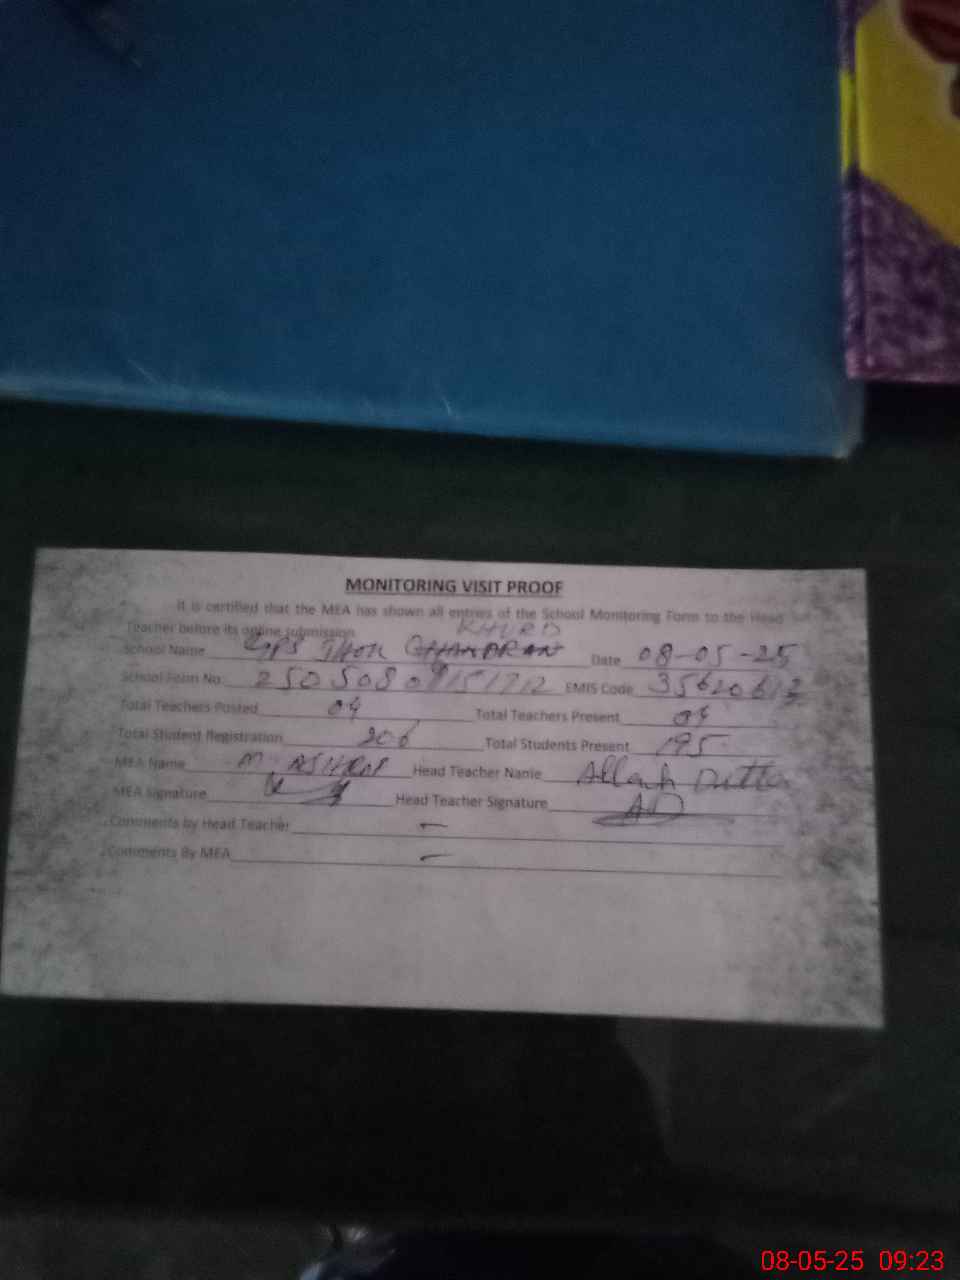 MONITORING VISIT PROOF
It is certified that the MEA has shown all entries of the School Monitoring Form to the Head
Teacher before its online submission.
KHURD
School Name GPS Date 08-05-25
School Form No. EMIS Code 35620612
Total Teachers Posted 04 Total Teachers Present 04
Total Student Registration 206 Total Students Present 195
MEA Name M. ASHRAF Head Teacher Name Allah Ditta
MEA Signature Head Teacher Signature AD
Comments by Head Teacher -
Comments By MEA -
08-05-25 09:23